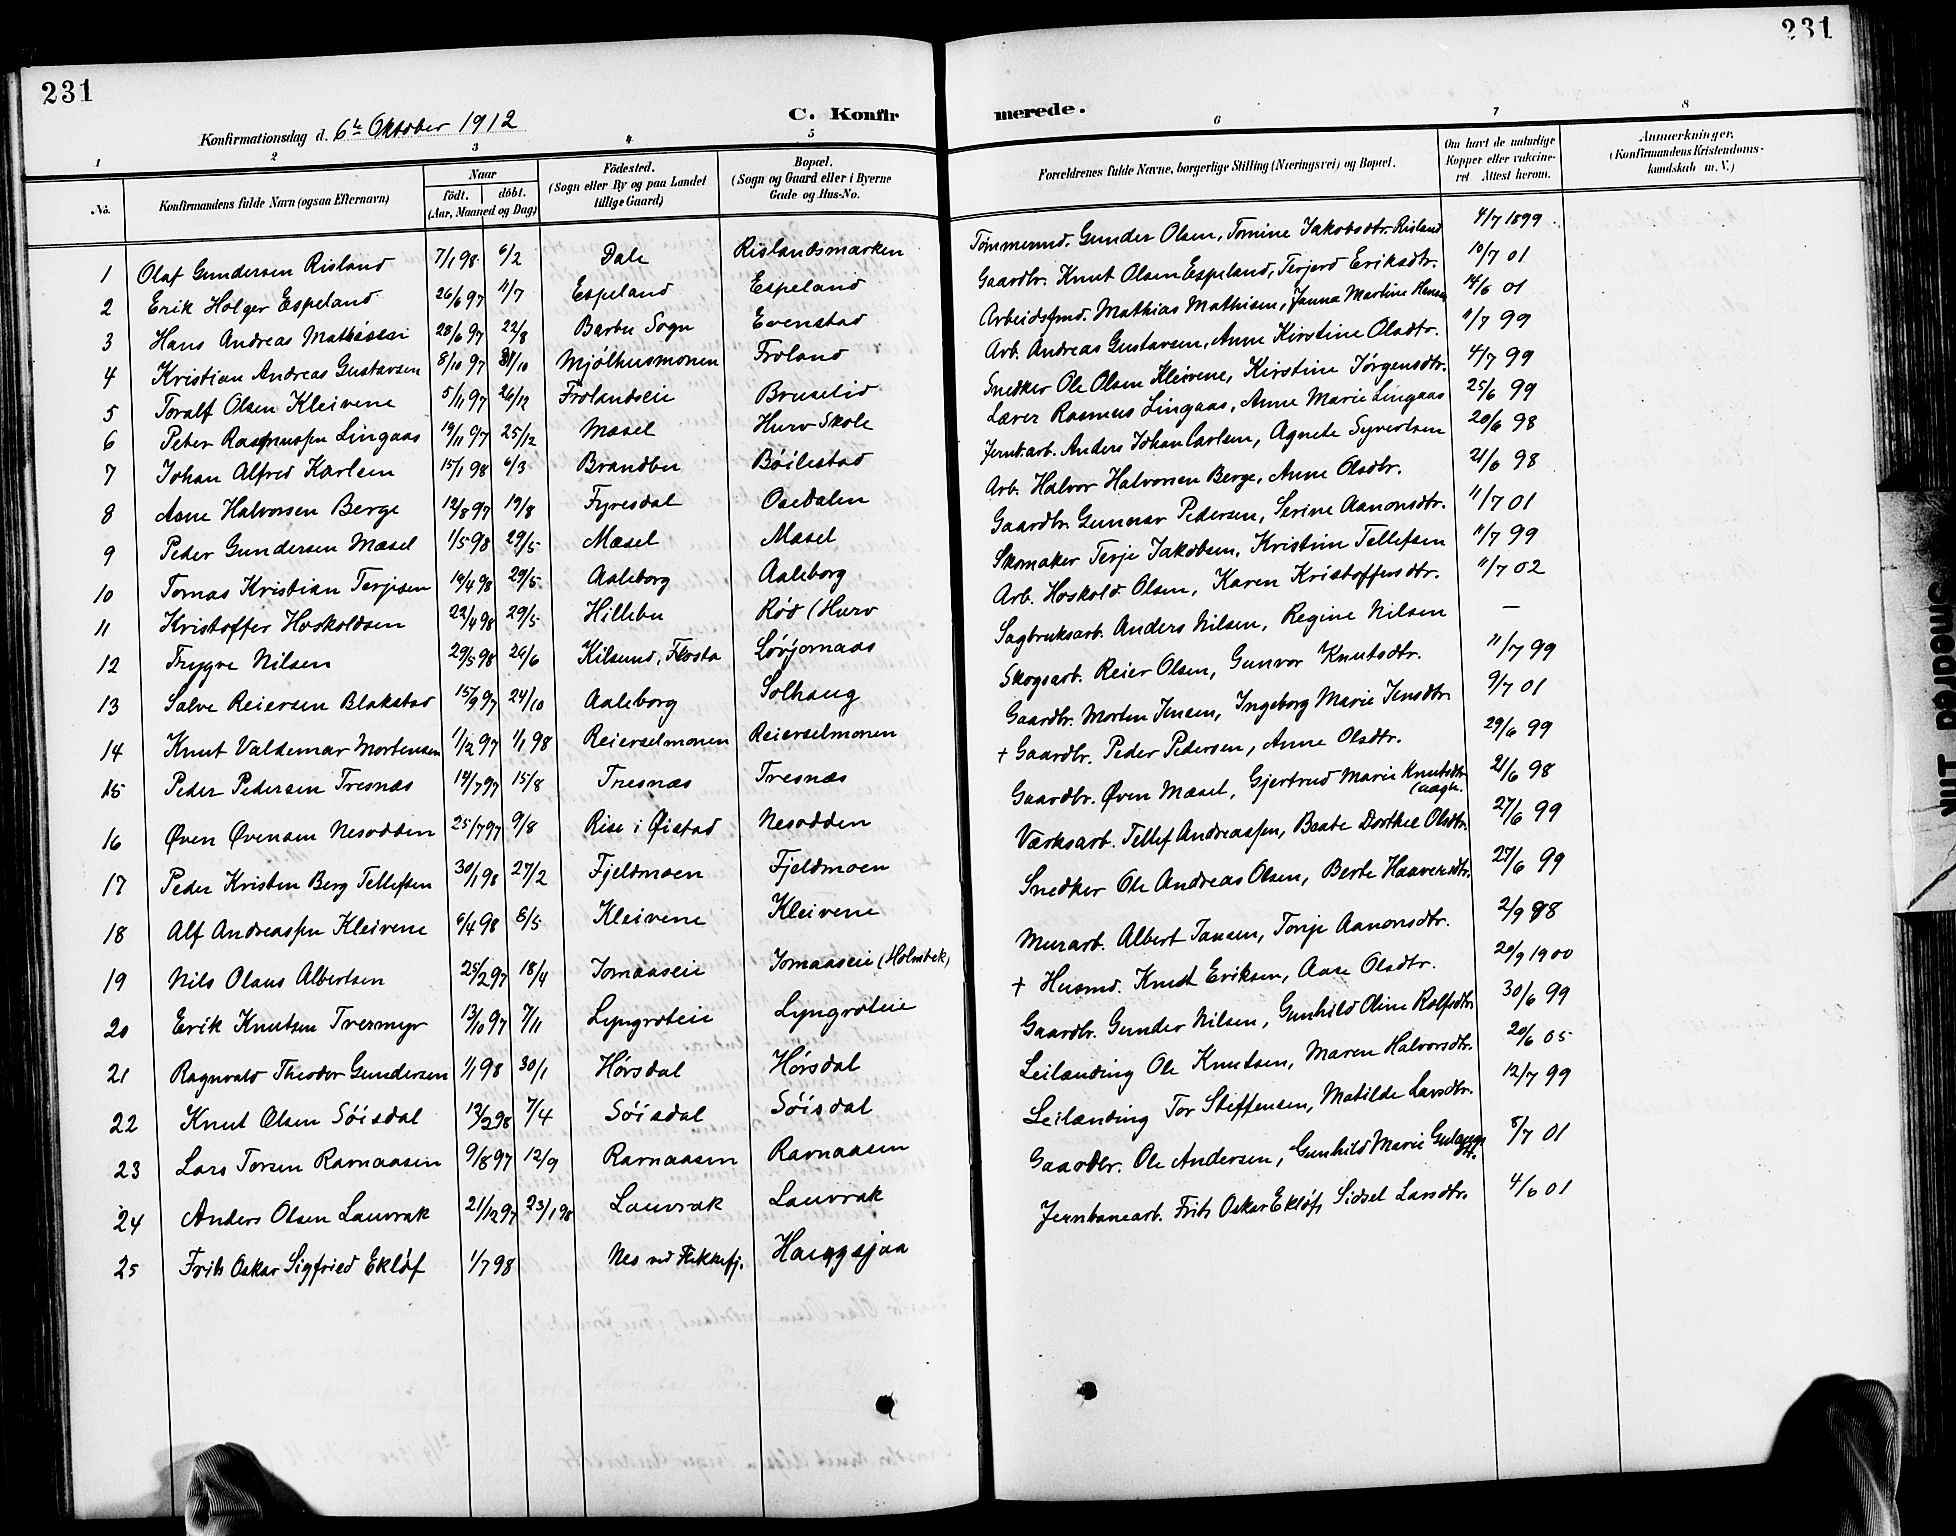 231
231
Konfirmationsdag d. 6te Oktober 1912
C. Konfir
merede.
1 2 3 4 5 6 7 8
No.
Konfirmandens fulde Navn (ogsaa Efternavn)
Naar
födt. döbt.
(Aar, Maaned og Dag)
Födested.
(Sogn eller By og paa Landet
tillige Gaard)
Bopæl.
(Sogn og Gaard eller i Byerne
Gade og Hus-No.
Forældrenes fulde Navne, borgerlige Stilling (Næringsvei) og Bopæl.
Om havt de naturlige
Kopper eller vakcine-
ret Attest herom.
Anmærkninger.
(Konfirmandens Kristendoms-
kundskab m.V.)
1 Olaf Gundersen Risland 7/1 98 6/2 Dale Rislandsmarken Tømmermd. Gunder Olsen, Tomine Jakobsdtr. Risland 4/7 1899
2 Erik Holger Espeland 26/6 97 11/7 Espeland Espeland Gaardbr. Knut Olsen Espeland, Terjerd Eriksdtr. 10/7 01
3 Hans Andreas Mathisen 28/6 97 22/8 Barbu Sogn Evenstad Arbeidsmd. Mathias Mathisen, Janna Martine Hansen 14/6 01
4 Kristian Andreas Gustavsen 8/10 97 31/10 Mjølhusmonen Froland Arb. Andreas Gustavsen, Anne Kirstine Olsdtr. 1/7 99
5 Toralf Olsen Kleivene 5/11 97 26/12 Frolandseie Bruselid Snedker Ole Olsen Kleivene, Kirstine Jørgensdtr. 4/7 99
6 Peter Rasmussen Lingaas 19/11 97 25/12 Mæsel Hurv Skole Lærer Rasmus Lingaas, Anne Marie Lingaas 25/6 99
7 Johan Alfred Karlsen 15/1 98 6/3 Brandbu Böilestad Jernb.arb. Anders Johan Carlsen, Agnete Syvertsen 20/6 98
8 Aane Halvorsen Berge 12/8 97 19/8 Fyresdal Osedalen Arb. Halvor Halvorsen Berge, Anne Olsdtr. 21/6 98
9 Peder Gundersen Mæsel 1/5 98 29/5 Mæsel Mæsel Gaardbr. Gunnar Pedersen, Serine Aanonsdtr. 11/7 01
10 Tomas Kristian Terjesen 19/4 98 29/5 Aaleborg Aaleborg Skomaker Terje Jakobsen, Kristine Tellefsen 11/7 99
11 Kristoffer Hoskoldsen 22/4 98 29/5 Hillebu Rød (Hurv Arb. Hoskold Olsen, Karen Kristoffersdtr. 11/7 02
12 Trygve Nilsen 29/5 98 26/6 Kilsund, Flosta Løvjomaas Sagbruksarb. Anders Nilsen, Regine Nilsen —
13 Salve Reiersen Blakstad 15/9 97 24/10 Aaleborg Solhaug Skogsarb. Reier Olsen, Gunvor Knutsdtr. 11/7 99
14 Knut Valdemar Mortensen 1/12 97 1/1 98 Reierselmonen Reierselmonen Gaardbr. Morten Jensen, Ingeborg Marie Jensdtr. 9/7 01
15 Peder Pedersen Tresnæs 14/7 97 15/8 Tresnæs Tresnæs + Gaardbr. Peder Pedersen, Anne Olsdtr. 29/6 99
16 Øven Øvensen Nesodden 25/7 97 9/8 Rise i Øistad Nesodden Gaardbr. Øven Mæsel, Gjertrud Marie Knutsdtr. (uægte. 21/6 98
17 Peder Kristen Berg Tellefsen 30/1 98 27/2 Fjeldmoen Fjeldmoen Værksarb. Tellef Andreassen, Beate Dorthee Olsdtr. 27/6 99
18 Alf Andreassen Kleivene 6/4 98 8/5 Kleivene Kleivene Snedker Ole Andreas Olsen, Berte Haaversdtr. 27/6 99
19 Nils Olaus Albertsen 25/2 97 18/4 Jomaaseie Jomaaseie (Holmbek) Murarb. Albert Jansen, Torje Aanonsdtr. 2/9 98
20 Erik Knutsen Tvermyr 13/10 97 7/11 Lyngroteie Lyngroteie + Husmd. Knut Eriksen, Aase Olsdtr. 20/9 1900
21 Ragnvald Theodor Gundersen 1/1 98 30/1 Hørsdal Hørsdal Gaardbr. Gunder Nilsen, Gunhild Oline Rolfsdtr. 30/6 99
22 Knut Olsen Söisdal 13/2 98 7/4 Söisdal Söisdal Leilænding Ole Knutsen, Maren Halvorsdtr. 20/6 05
23 Lars Torsen Ravnaasen 9/8 97 12/9 Ravnaasen Ravnaasen Leilænding Tor Steffensen, Matilde Larsdtr. 12/7 99
24 Anders Olsen Lauvrak 21/12 97 23/1 98 Lauvrak Lauvrak Gaardbr. Ole Andersen, Gunhild Marie 8/7 01
25 Frits Oskar Sigfried Ekløf 1/7 98 Nes ved Flikkefj. Haugsjaa Jernbanearb. Frits Oskar Ekløf, Sidsel Larsdtr. 4/6 01